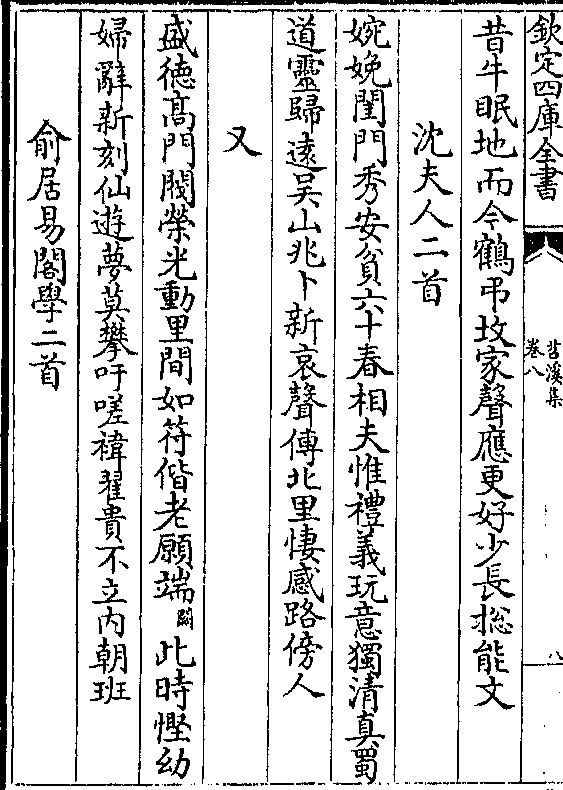 欽定四庫全書
苕溪集
卷八
八
昔牛眠地而今鶴弔墳家聲應更好少長揔能文
沈夫人二首
婉娩閨門秀安貧六十春相夫惟禮義玩意獨清真蜀
道靈歸遠吴山兆卜新哀聲傳北里悽感路傍人
又
盛德髙門閥榮光動里閭如符偕老願端闕此時慳幼
婦辭新刻仙遊夢莫攀吁嗟褘翟貴不立内朝班
俞居易閣學二首